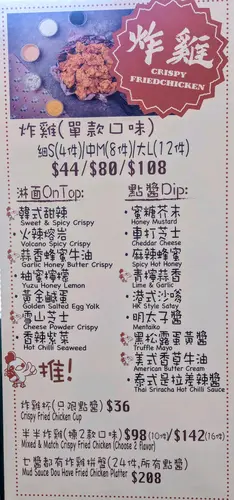 炸雞
CRISPY
FRIEDCHICKEN
炸雞(單款口味)
細S(4件)/中M(8件)/大L(12件)
$44/$80/$108
淋面OnTop:
韓式甜辣
Sweet & Spicy Crispy
火辣熔岩
Volcano Spicy Crispy
蒜香蜂蜜牛油
Garlic Honey Butter Crispy
柚蜜檸檬
Yuzu Honey Lemon
黃金鹹蛋
Golden Salted Egg Yolk
雪山芝士
Cheese Powder Crispy
香辣紫菜
Hot Chilli Seaweed
推!
點醬Dip:
蜜糖芥末
Honey Mustard
車打芝士
Cheddar Cheese
麻辣蜂蜜
Spicy Hot Honey
青檸蒜香
Lime & Garlic
港式沙嗲
HK Style Satay
明太子醬
Mentaiko
黑松露蛋黃醬
Truffle Mayo
美式香草牛油
American Butter Cream
泰式是拉差辣醬
Thai Sriracha Hot Chilli Sauce
炸雞杯(只限點醬) $36
Crispy Fried Chicken Cup
半半炸雞(揀2款口味) $98(10件)/$142(16件)
Mixed & Match Crispy Fried Chicken (Choose 2 flavor)
乜醬都有炸雞拼盤(24件,所有點醬)
Mud Sauce Dou Have Fried Chicken Platter $208